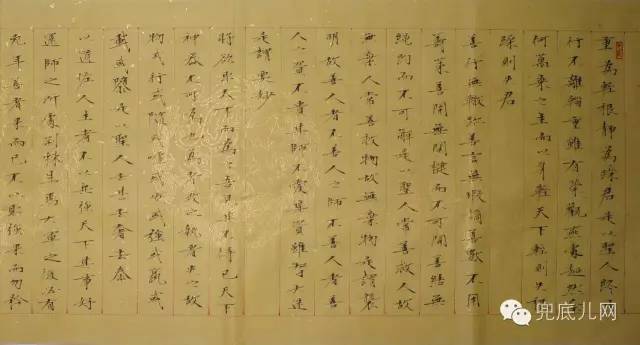 重為輕根靜為躁君是以聖人終日
行不離輜重雖有榮觀燕處超然奈
何萬乘之主而以身輕天下輕則失根
躁則失君
善行無轍跡善言無瑕謫善數不用
籌策善閉無關楗而不可開善結無
繩約而不可解是以聖人常善救人故
無棄人常善救物故無棄物是謂襲
明故善人不善人之師不善人者善
人之資不貴其師不愛其資雖智大迷
是謂要妙
將欲取天下而為之吾見其不得已天下
神器不可為也為者敗之執者失之故
物或行或隨或噓或吹或強或羸或
載或隳是以聖人去甚去奢去泰
以道佐人主者不以兵強天下其事好
還師之所處荊棘生焉大軍之後必有
凶年善者果而已不以取強果而勿矜
兜底儿网